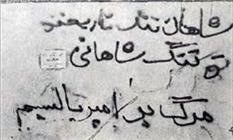 شاهان ننگ تاریخند
تو ننگ شاهانی
مرگ بر امپریالیسم